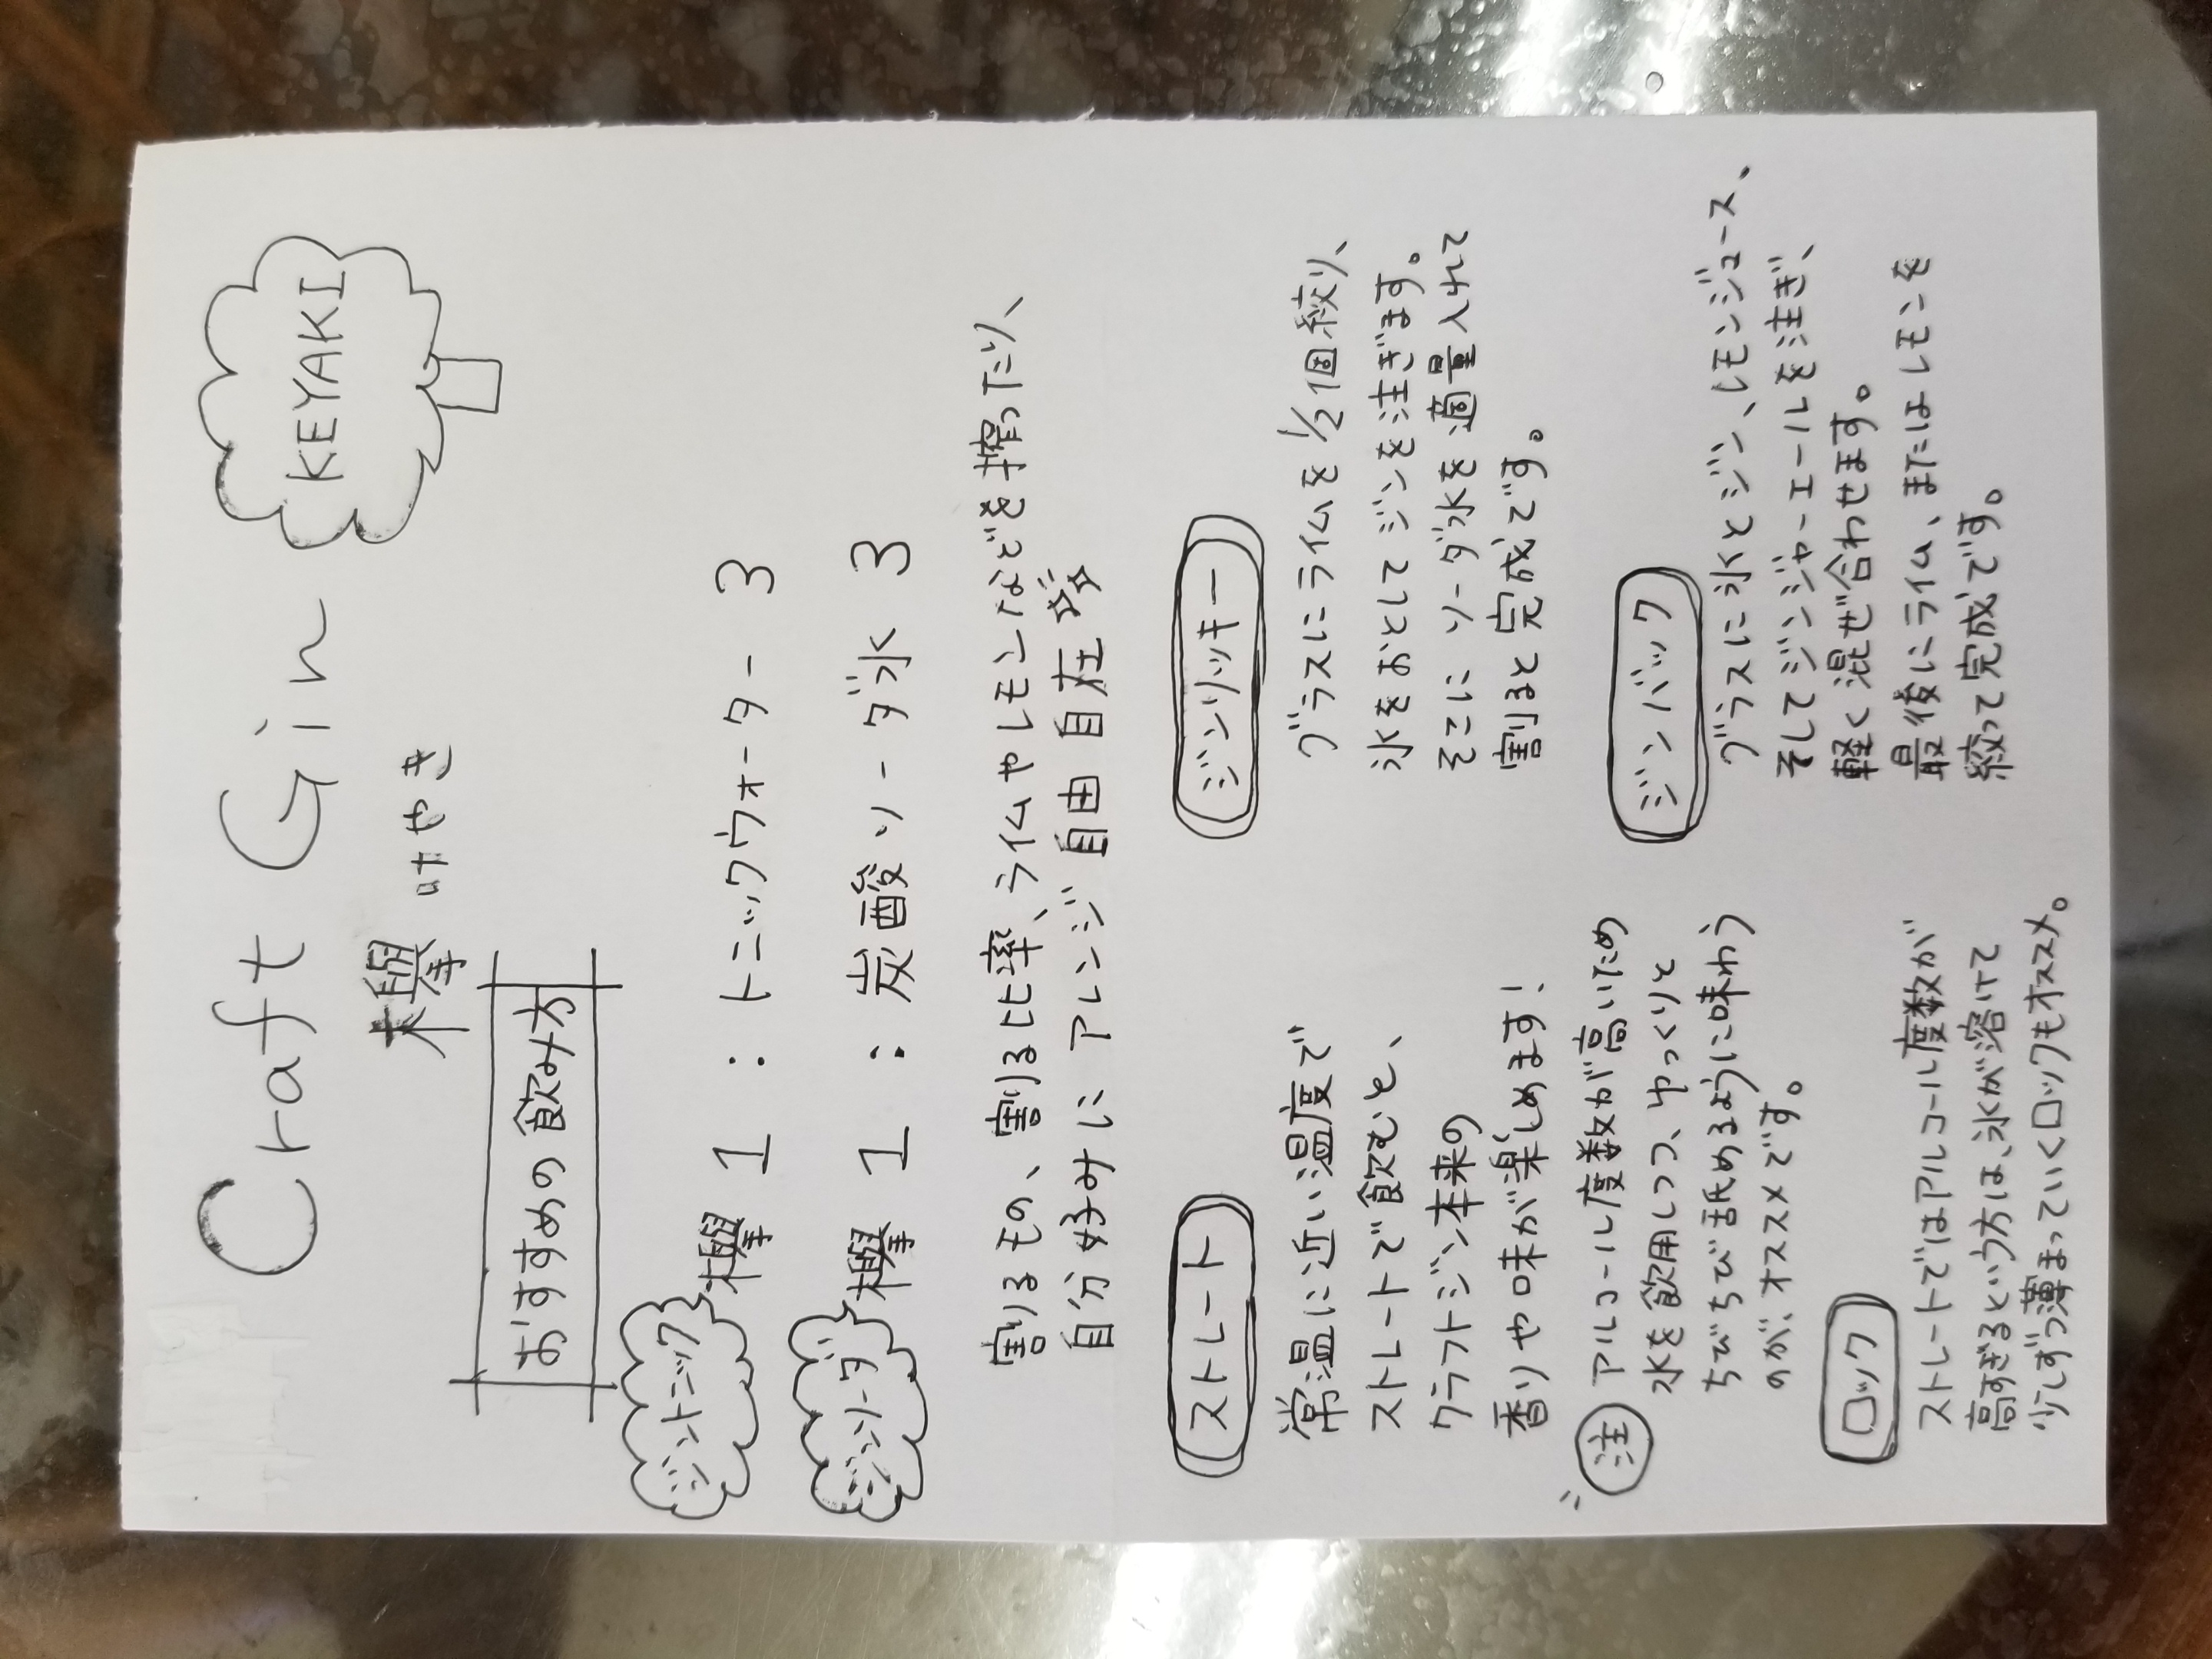 Craft Gin
KEYAKI
欅 けやき
おすすめの飲み方
ジントニック 欅 1 : トニックウォーター 3
ジンソーダ 欅 1 : 炭酸ソーダ水 3
割るもの、割る比率、ライムやレモンなどを搾ったり、
自分好みに アレンジ 自由自在
ストレート
常温に近い温度で
ストレートで飲むと、
クラフトジン本来の
香りや味が楽しめます!
注 アルコール度数が高いため
水を飲用しつつ、ゆっくりと
ちびちび舐めるように味わう
のが、オススメです。
ロック
ストレートではアルコール度数が
高すぎるという方は、氷が溶けて
少しずつ薄まっていくロックもオススメ。
ジンリッキー
グラスにライムを1/2個絞り、
氷をおとしてジンを注ぎます。
そこに ソーダ水を適量入れて
割ると完成です。
ジンバック
グラスに氷とジン、レモンジュース、
そしてジンジャーエールを注ぎ、
軽く混ぜ合わせます。
最後にライム、またはレモンを
絞って完成です。